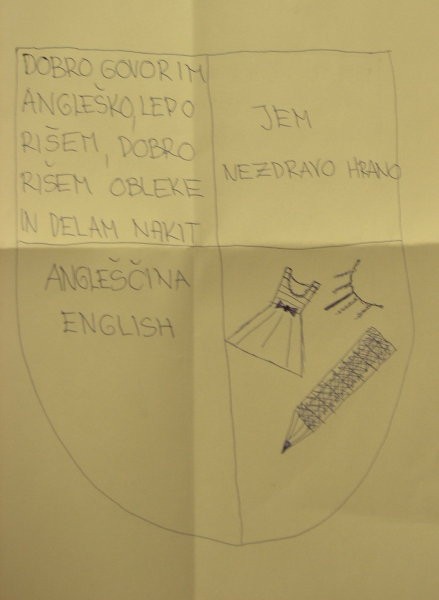 DOBRO GOVORIM
ANGLEŠKO, LEPO
RIŠEM, DOBRO
RIŠEM OBLEKE
IN DELAM NAKIT
JEM
NEZDRAVO HRANO
ANGLEŠČINA
ENGLISH